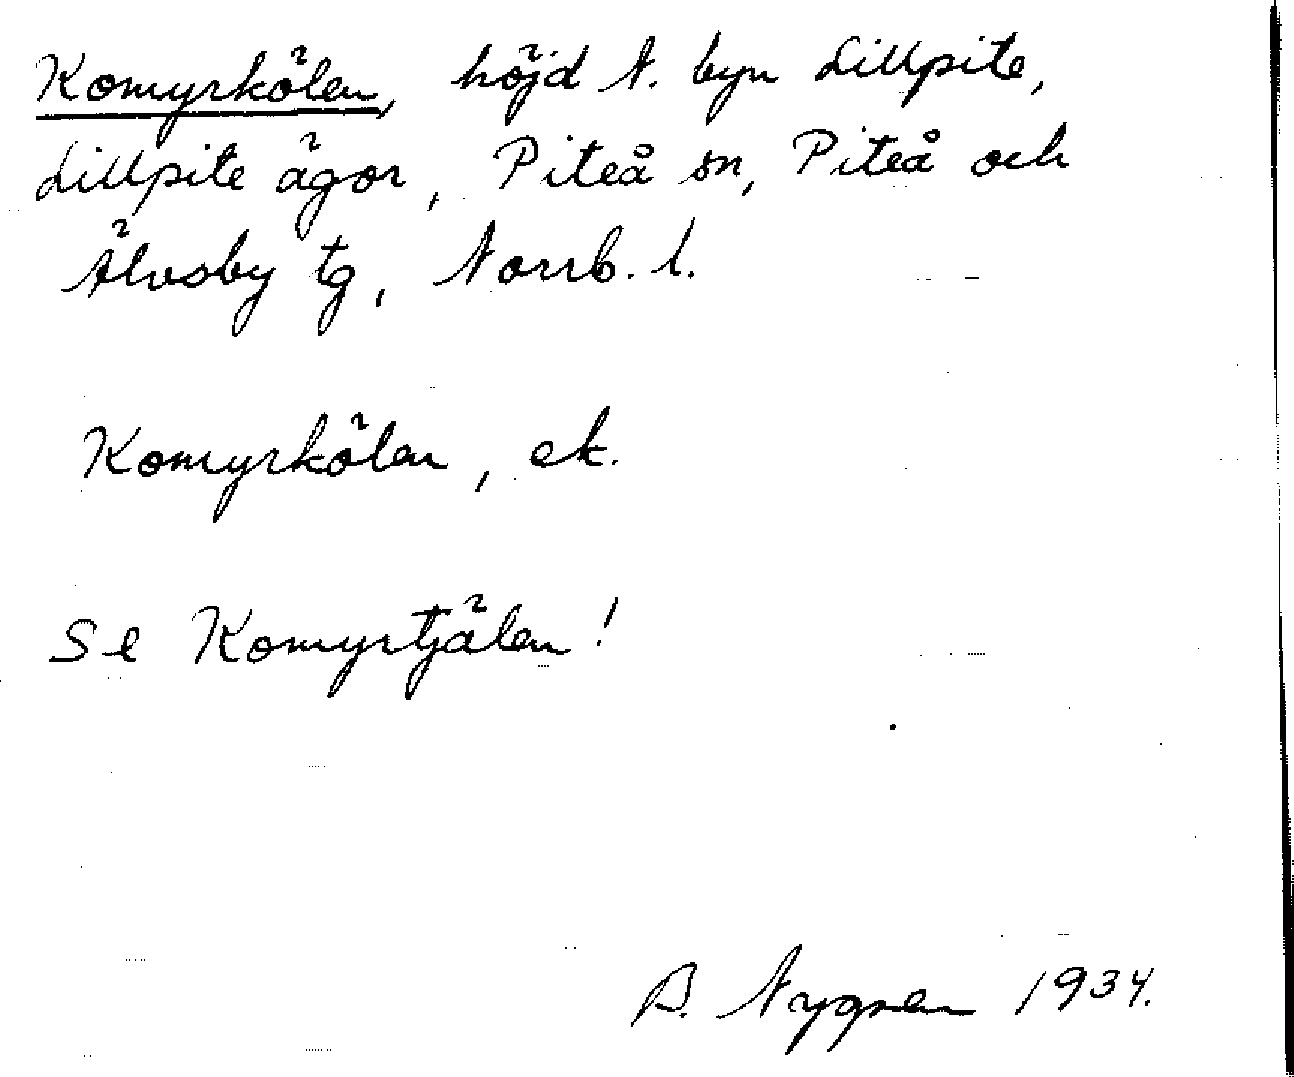 Komyrkölen, höjd N. byn Lillpite,
Lillpite ägor, Piteå sn, Piteå och
Älvsby tg, Norrb. l.
Komyrkölen, ek.
Se Komyrtjälen!
B. Nygren 1934.